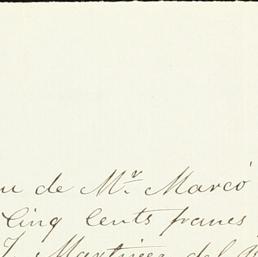 de Mr. Marcó
Cinq cents francs
Martinez del